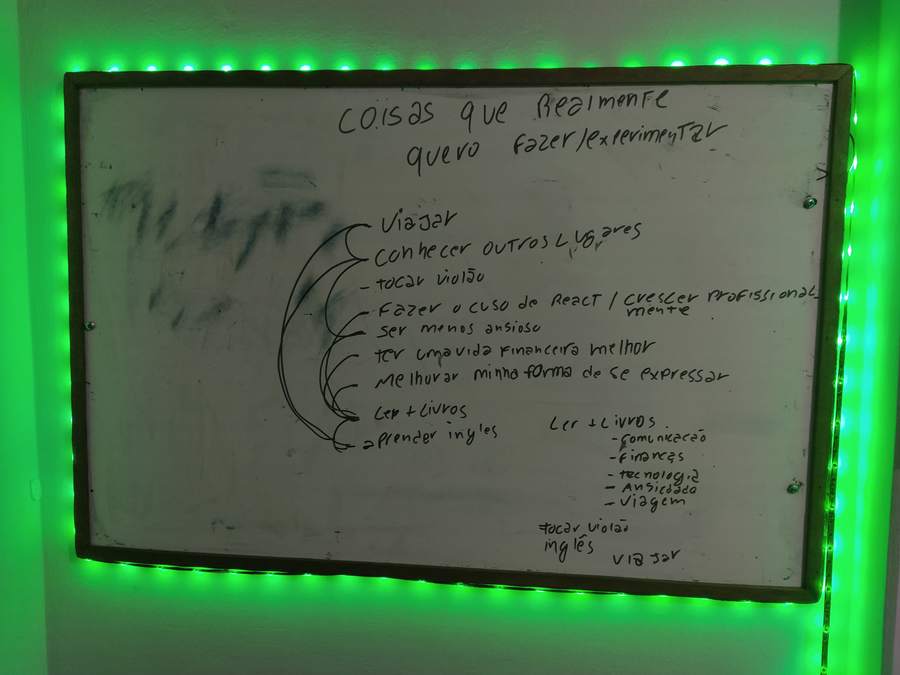 COISAS QUE REALMENTE
QUERO FAZER/EXPERIMENTAR
- VIAJAR
CONHECER OUTROS LUGARES
- TOCAR VIOLÃO
- FAZER O CUSO DE REACT / CRESCER PROFISSIONAL-
MENTE
- SER MENOS ANSIOSO
- TER UMA VIDA FINANCEIRA MELHOR
- MELHORAR MINHA FORMA DE SE EXPRESSAR
- LER + LIVROS
- APRENDER INGLES
LER + LIVROS
- COMUNICAÇÃO
- FINANÇAS
- TECNOLOGIA
- ANSIEDADE
- VIAGEM
TOCAR VIOLÃO
INGLÊS
VIAJAR